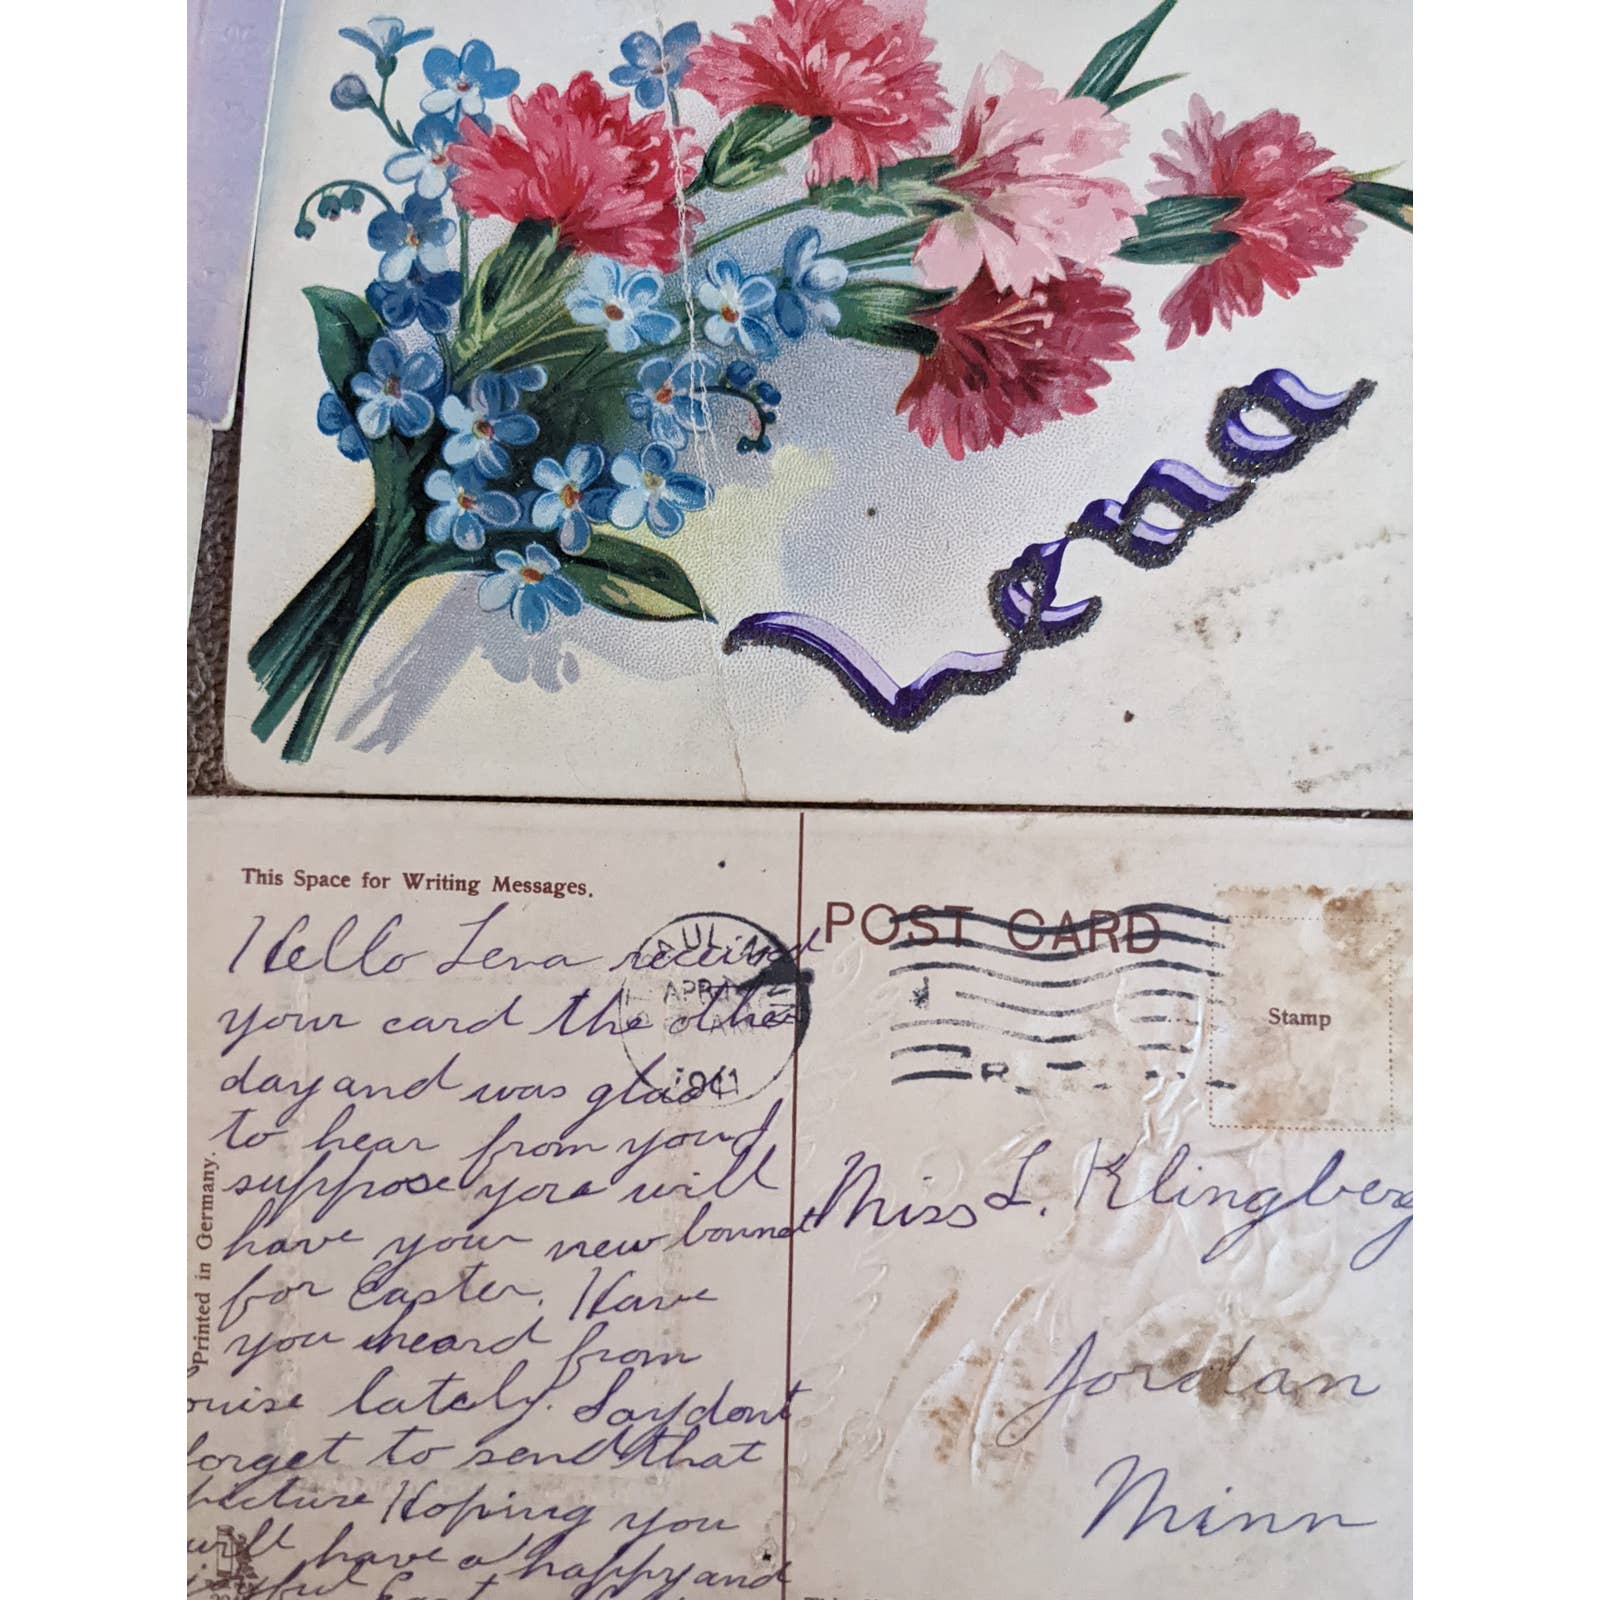 Lena
This Space for Writing Messages.
Hello Lena received
your card the other
day and was glad
to hear from you I
suppose you will
have your new bonnet
for Easter. Have
you heard from
ouise lately. Say dont
forget to send that
picture Hoping you
will have a happy and
Printed in Germany.
PAUL, M
APR
1911
POST CARD
Stamp
Miss L. Klingberg
Jordan
Minn